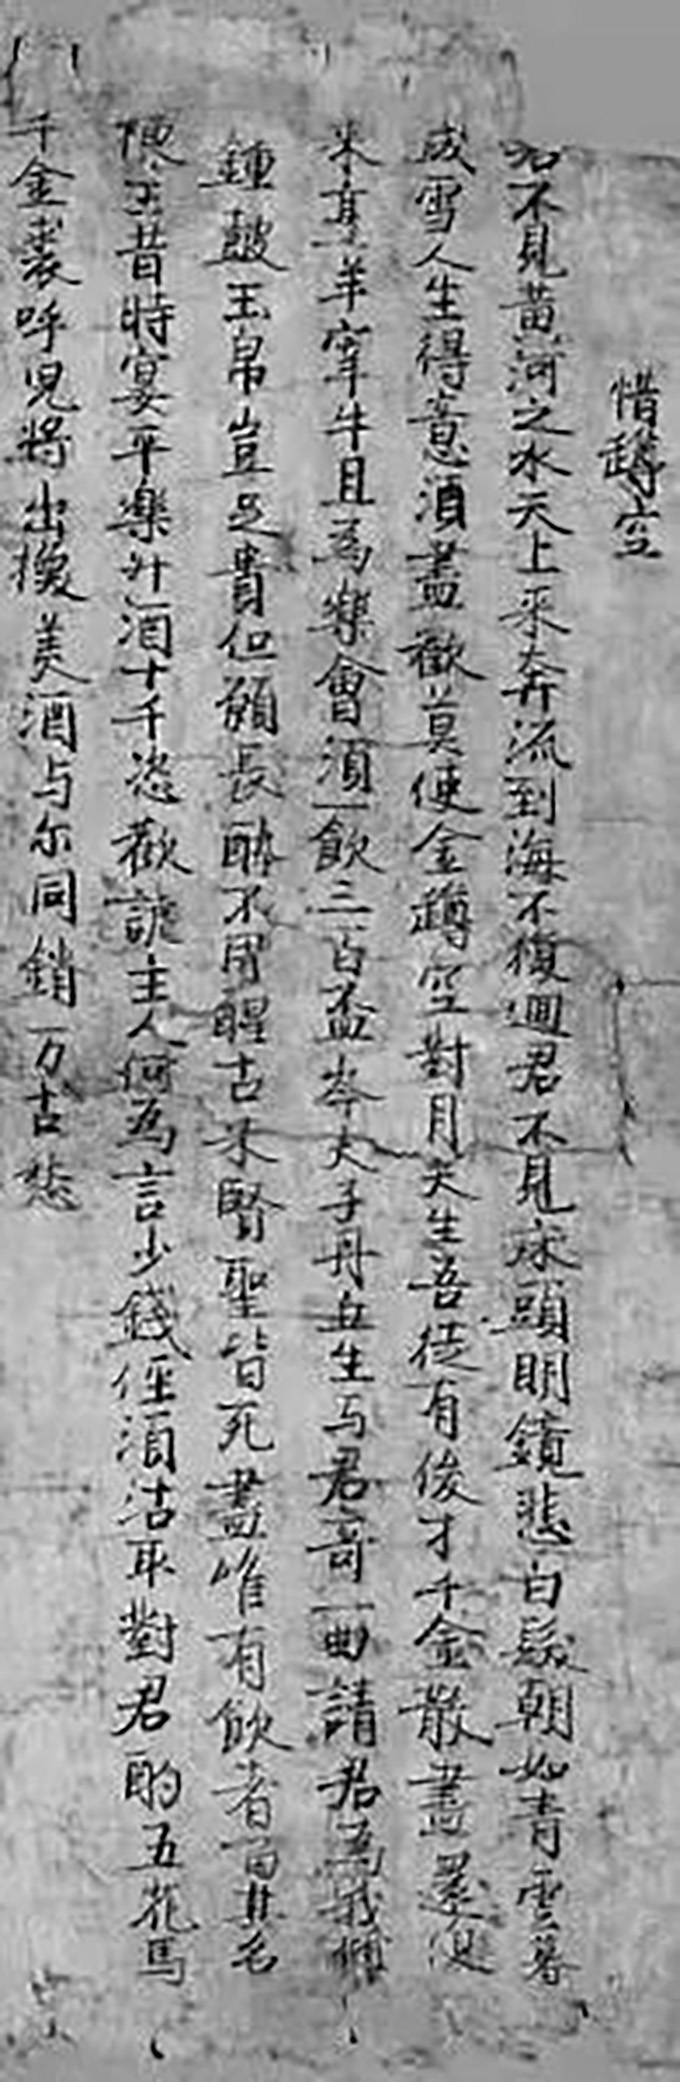 惜罇空
君不見黃河之水天上來奔流到海不復迴君不見床頭明鏡悲白髮朝如青雲暮
成雪人生得意須盡歡莫使金罇空對月天生吾徒有俊才千金散盡還復
來烹羊宰牛且為樂會須一飲三百盃岑夫子丹丘生与君哥一曲請君為我傾
鍾皷玉帛豈足貴但願長醉不用醒古來賢聖皆死盡唯有飲者留其名
陳王昔時宴平樂斗酒十千恣歡謔主人何為言少錢侄須沽取對君酌五花馬
千金裘呼兒將出換美酒与尔同銷万古愁